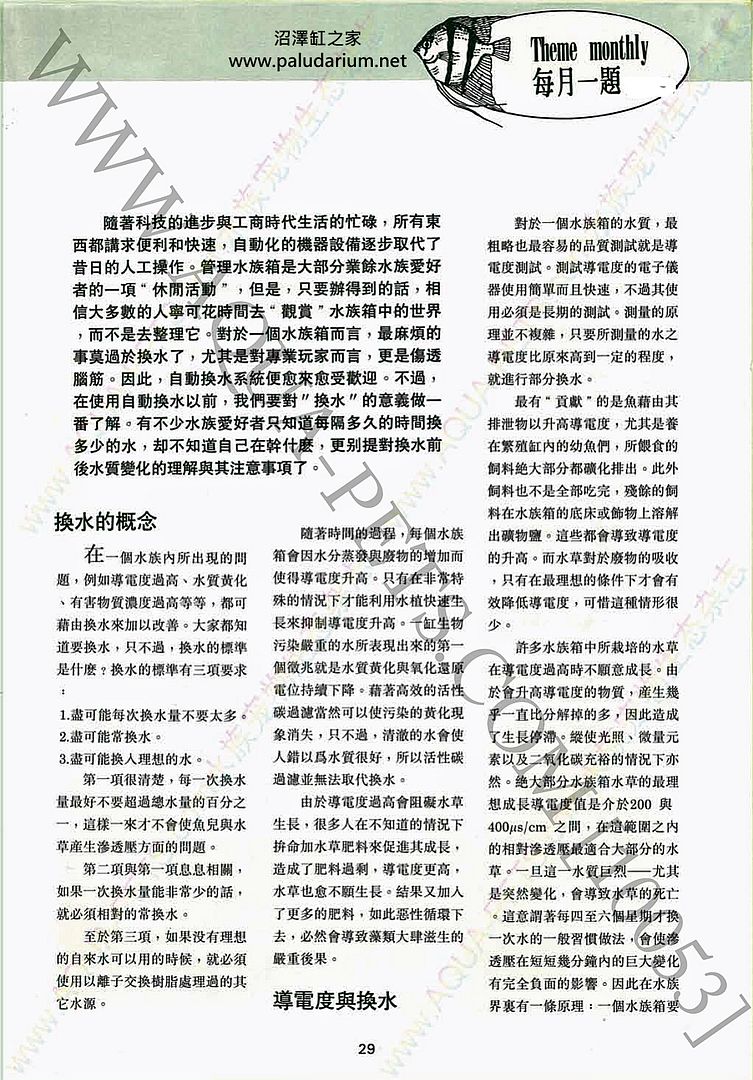 沼澤缸之家
www.paludarium.net
Theme monthly
每月一題
隨著科技的進步與工商時代生活的忙碌，所有東
西都講求便利和快速，自動化的機器設備逐步取代了
昔日的人工操作。管理水族箱是大部分業餘水族愛好
者的一項“休閒活動”，但是，只要辦得到的話，相
信大多數的人寧可花時間去“觀賞”水族箱中的世界
，而不是去整理它。對於一個水族箱而言，最麻煩的
事莫過於換水了，尤其是對專業玩家而言，更是傷透
腦筋。因此，自動換水系統便愈來愈受歡迎。不過，
在使用自動換水以前，我們要對〞換水〞的意義做一
番了解。有不少水族愛好者只知道每隔多久的時間換
多少的水，却不知道自己在幹什麼，更别提對換水前
後水質變化的理解與其注意事項了。
換水的概念
在一個水族內所出現的問
題，例如導電度過高、水質黃化
、有害物質濃度過高等等，都可
藉由換水來加以改善。大家都知
道要換水，只不過，換水的標準
是什麼？換水的標準有三項要求
：
1.盡可能每次換水量不要太多。
2.盡可能常換水。
3.盡可能換入理想的水。
第一項很清楚，每一次換水
量最好不要超過總水量的百分之
一，這樣一來才不會使魚兒與水
草產生滲透壓方面的問題。
第二項與第一項息息相關，
如果一次換水量能非常少的話，
就必須相對的常換水。
至於第三項，如果没有理想
的自來水可以用的時候，就必須
使用以離子交換樹脂處理過的其
它水源。
隨著時間的過程，每個水族
箱會因水分蒸發與廢物的增加而
使得導電度升高。只有在非常特
殊的情況下才能利用水植快速生
長來抑制導電度升高。一缸生物
污染嚴重的水所表現出來的第一
個徵兆就是水質黃化與氧化還原
電位持續下降。藉著高效的活性
碳過濾當然可以使污染的黃化現
象消失，只不過，清澈的水會使
人錯以爲水質很好，所以活性碳
過濾並無法取代換水。
由於導電度過高會阻礙水草
生長，很多人在不知道的情況下
拚命加水草肥料來促進其成長，
造成了肥料過剩，導電度更高，
水草也愈不願生長。結果又加入
了更多的肥料，如此惡性循環下
去，必然會導致藻類大肆滋生的
嚴重後果。
導電度與換水
對於一個水族箱的水質，最
粗略也最容易的品質測試就是導
電度測試。測試導電度的電子儀
器使用簡單而且快速，不過其使
用必須是長期的測試。測量的原
理並不複雜，只要所測量的水之
導電度比原來高到一定的程度，
就進行部分換水。
最有“貢獻”的是魚藉由其
排泄物以升高導電度，尤其是養
在繁殖缸內的幼魚們，所餵食的
飼料絶大部分都礦化排出。此外
飼料也不是全部吃完，殘餘的飼
料在水族箱的底床或飾物上溶解
出礦物鹽。這些都會導致導電度
的升高。而水草對於廢物的吸收
，只有在最理想的條件下才會有
效降低導電度，可惜這種情形很
少。
許多水族箱中所栽培的水草
在導電度過高時不願意成長。由
於會升高導電度的物質，産生幾
乎一直比分解掉的多，因此造成
了生長停滯。縱使光照、微量元
素以及二氧化碳充裕的情況下亦
然。絶大部分水族箱水草的最理
想成長導電度值是介於200 與
400μs/cm 之間，在這範圍之內
的相對滲透壓最適合大部分的水
草。一旦這一水質巨烈──尤其
是突然變化，會導致水草的死亡
。這意謂著每四至六個星期才換
一次水的一般習慣做法，會使滲
透壓在短短幾分鐘內的巨大變化
有完全負面的影響。因此在水族
界裏有一條原理：一個水族箱要
29
WWW.AQUA-PETS.COM [10053]